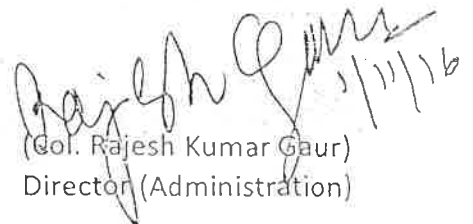 Rajesh Gaur
1/11/16
(Col. Rajesh Kumar Gaur)
Director (Administration)